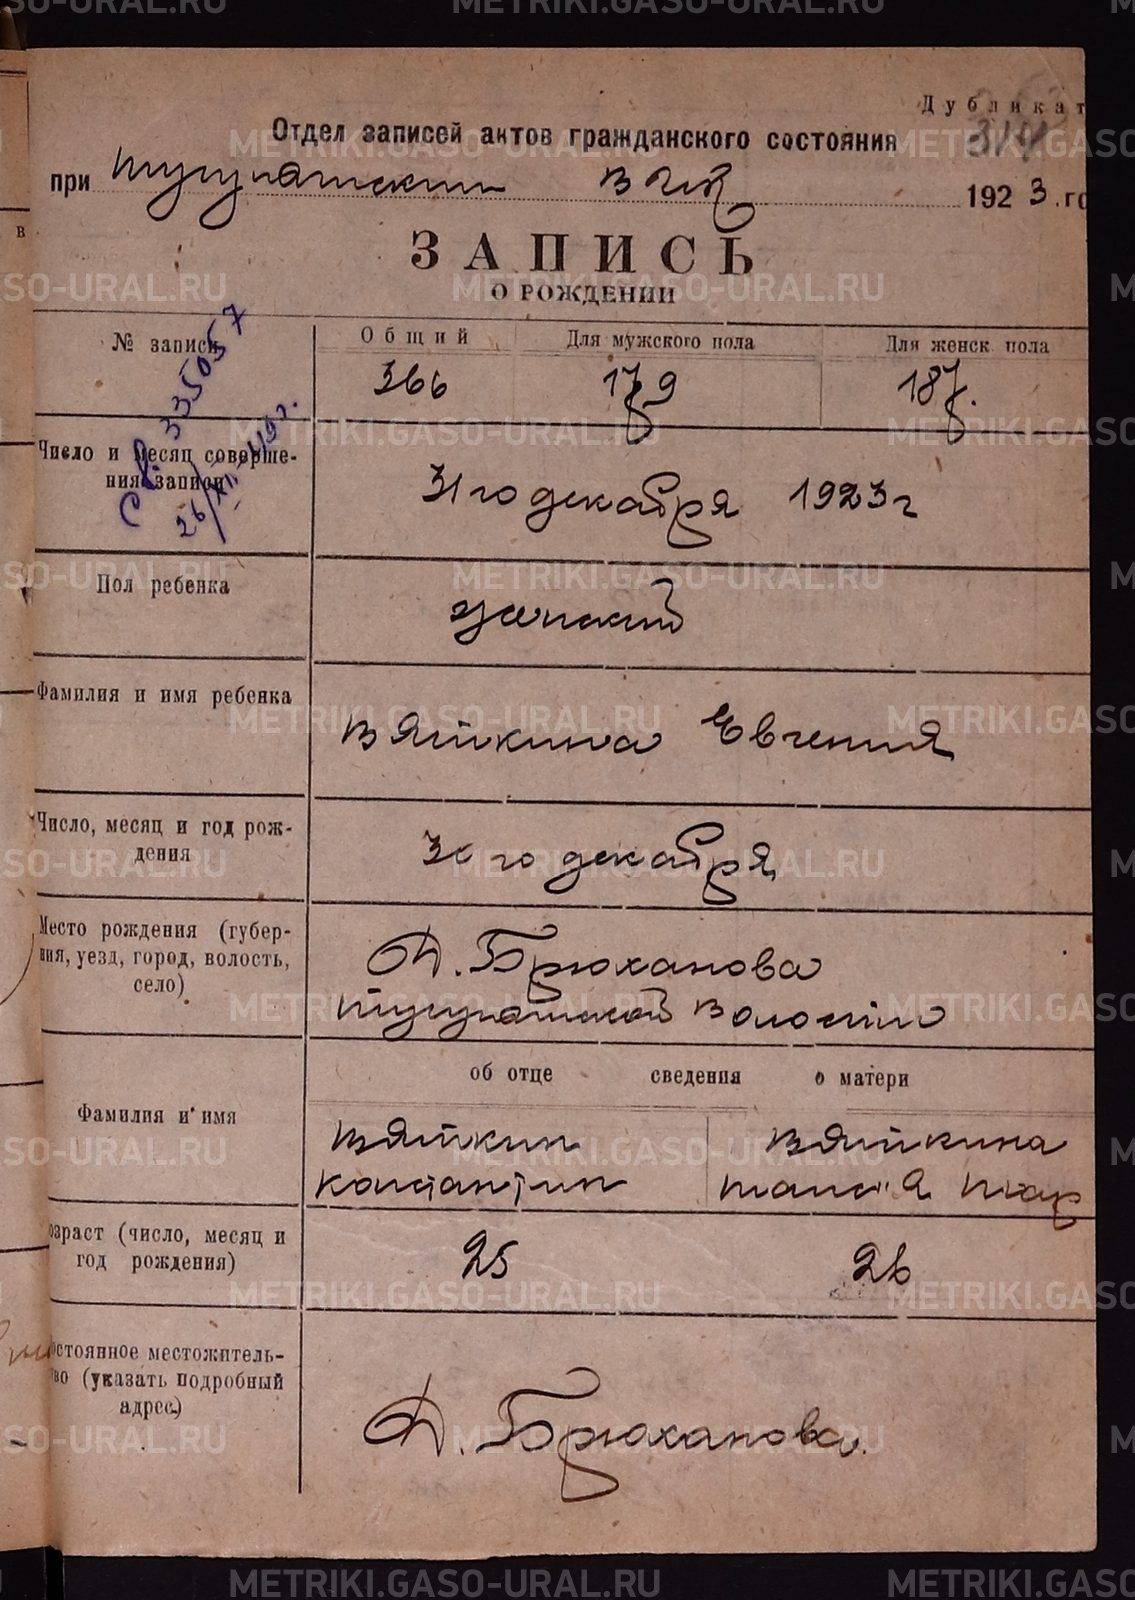 Дубликат
314
Отдел записей актов гражданского состояния
при Тугулымским ВИК 1923 го
ЗАПИСЬ
О РОЖДЕНИИ
№ записи
Общий
Для мужского пола
Для женск. пола
366
179
187.
св 335057
26/XII-49 г.
Число и месяц соверше-
ния записи
31 го декабря 1923 г
Пол ребенка
женский
Фамилия и имя ребенка
Вяткина Евгения
Число, месяц и год рож-
дения
30 го декабря
Место рождения (губер-
ния, уезд, город, волость,
село)
Д. Брюханова
волости
об отце сведения о матери
Фамилия и имя
Вяткин
Константин
Вяткина
Таисья
озраст (число, месяц и
год рождения)
25
26
остоянное местожитель-
во (указать подробный
адрес.)
Д. Брюханова.
METRIKI.GASO-URAL.RU